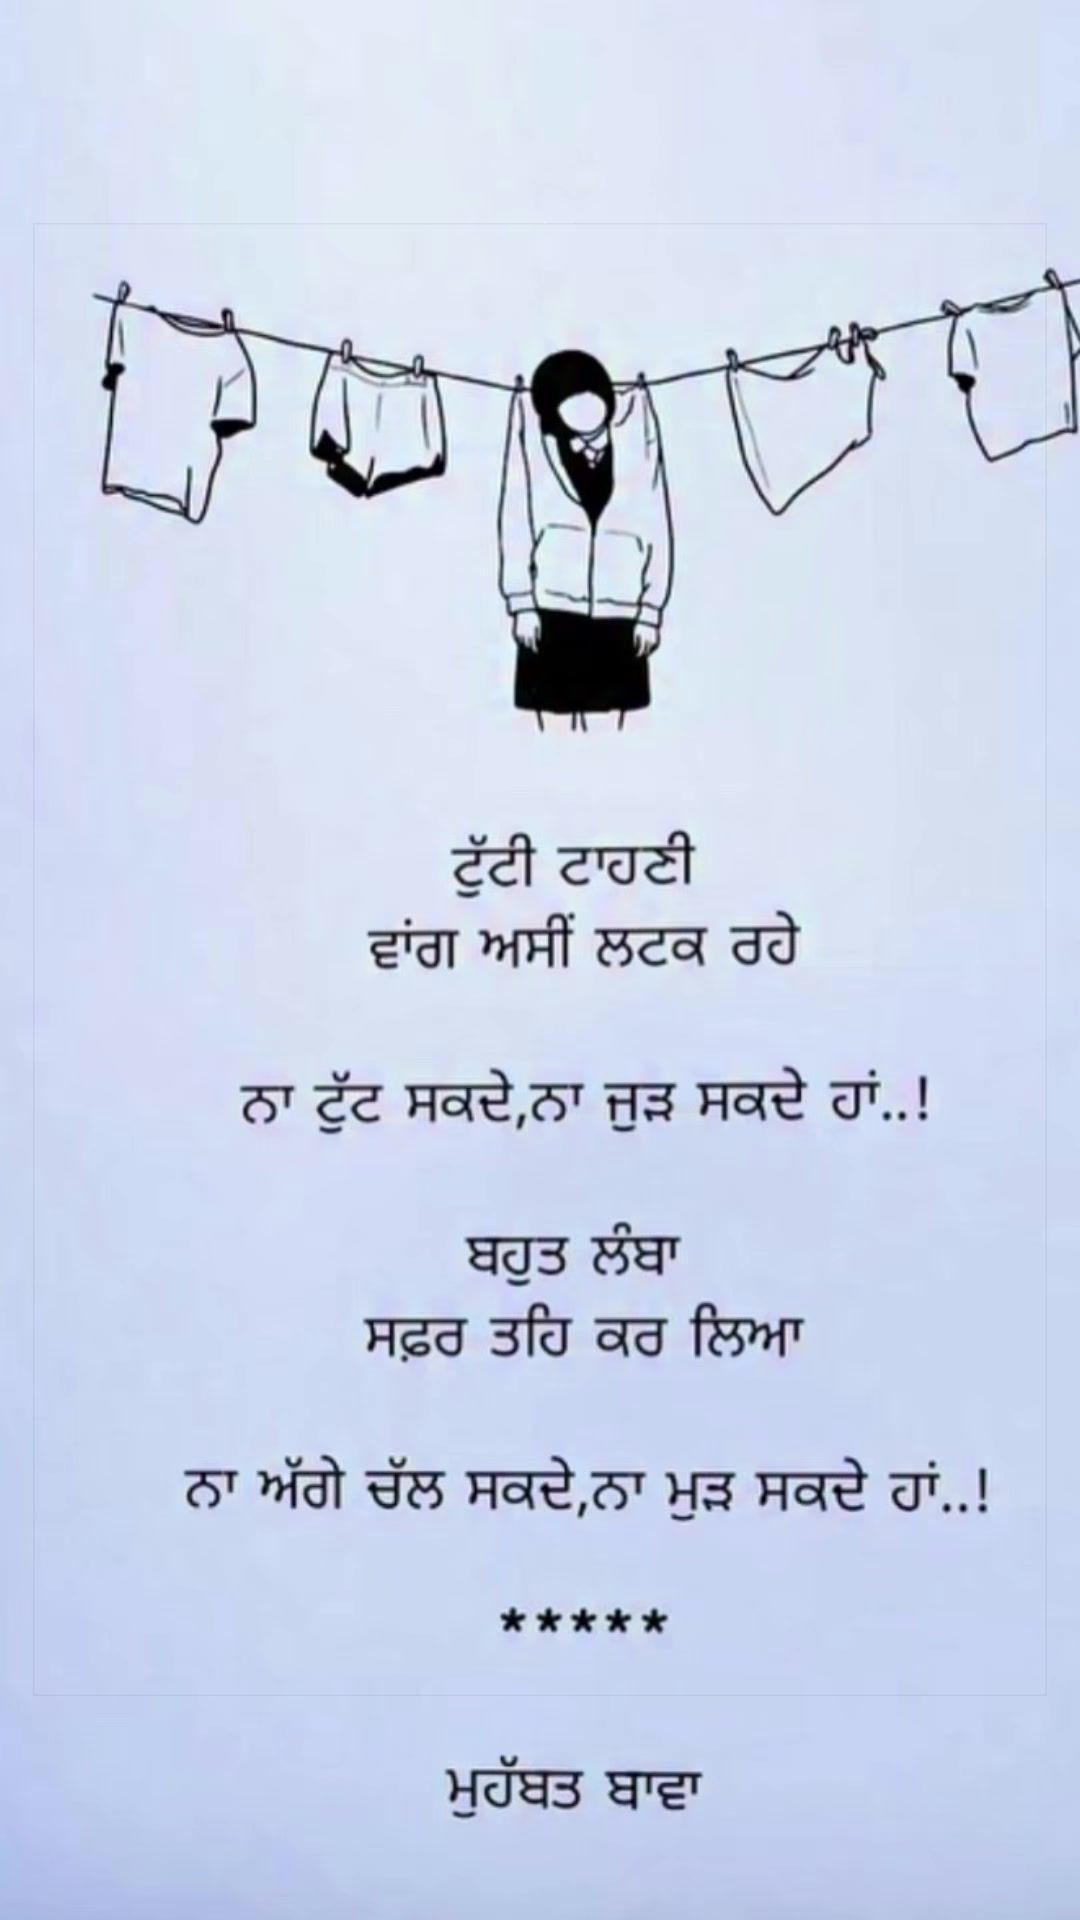 ਟੁੱਟੀ ਟਾਹਣੀ
ਵਾਂਗ ਅਸੀਂ ਲਟਕ ਰਹੇ
ਨਾ ਟੁੱਟ ਸਕਦੇ,ਨਾ ਜੁੜ ਸਕਦੇ ਹਾਂ..!
ਬਹੁਤ ਲੰਬਾ
ਸਫ਼ਰ ਤਹਿ ਕਰ ਲਿਆ
ਨਾ ਅੱਗੇ ਚੱਲ ਸਕਦੇ,ਨਾ ਮੁੜ ਸਕਦੇ ਹਾਂ..!
*****
ਮੁਹੱਬਤ ਬਾਵਾ